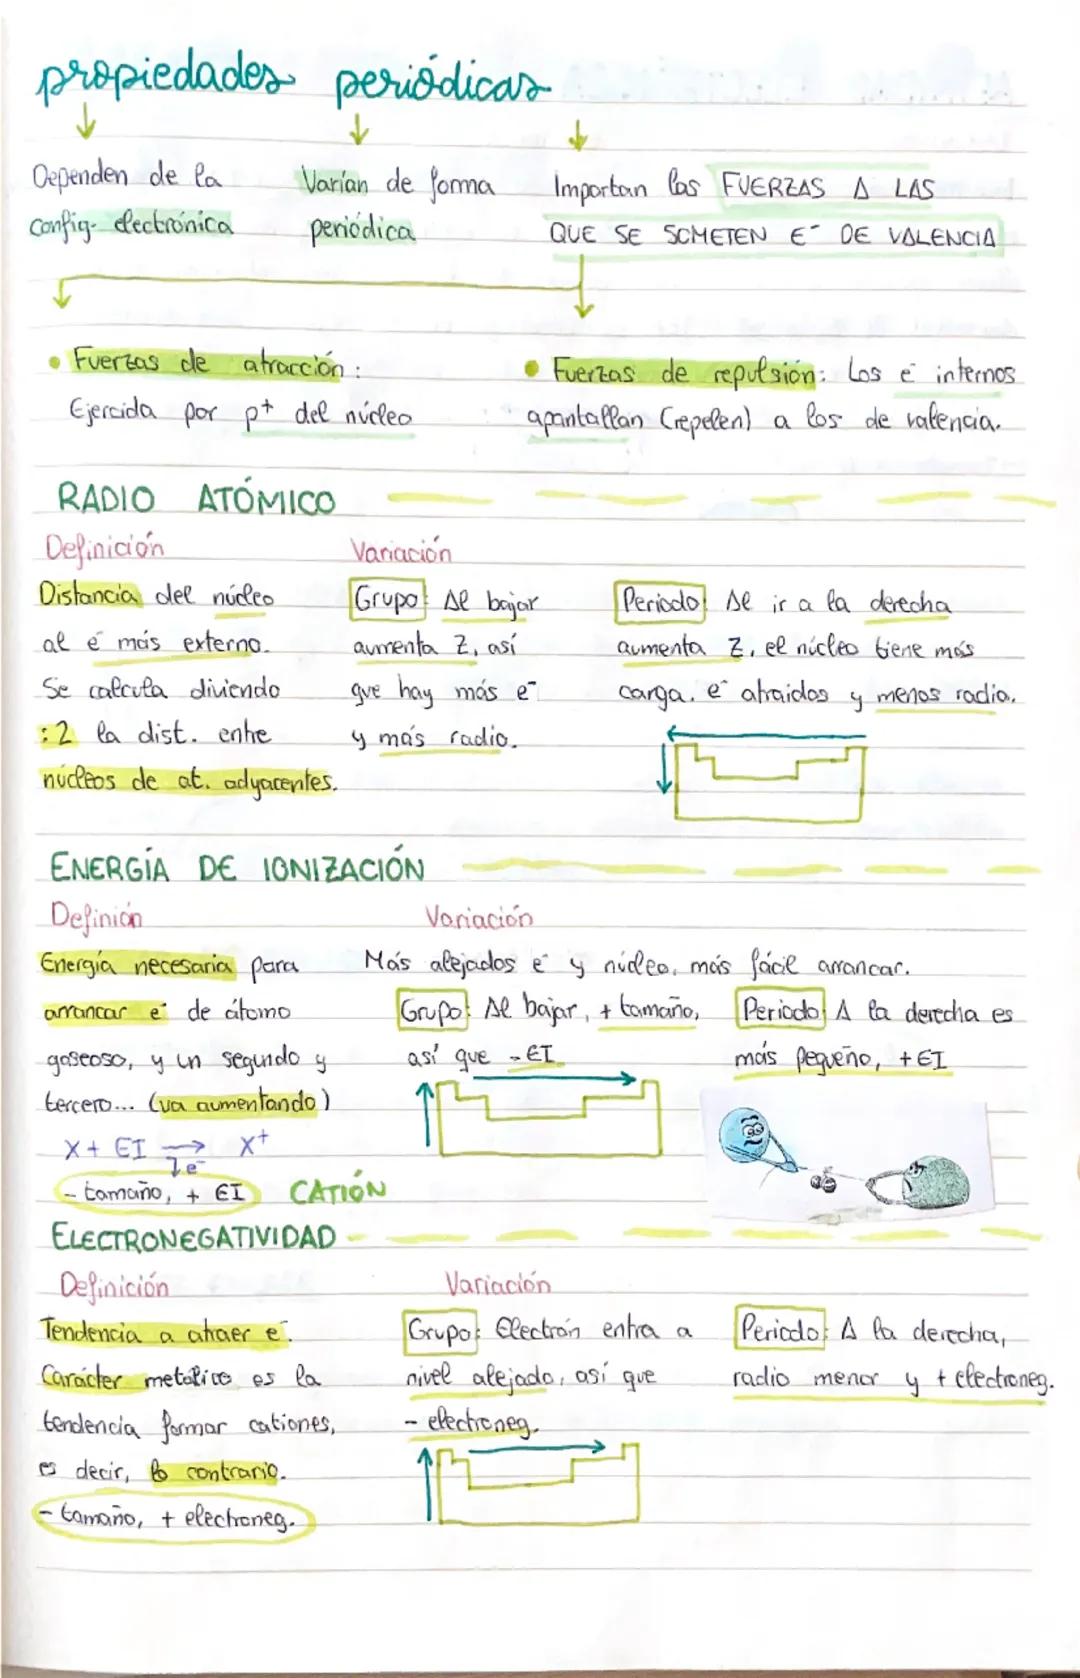 propiedades periódicas
Dependen de la
config. electrónica
Varían de forma
periódica
Importan las FUERZAS A LAS
QUE SE SOMETEN E⁻ DE VALENCIA
• Fuerzas de atracción:
Ejercida por p⁺ del núcleo
• Fuerzas de repulsión: Los e⁻ internos
apantallan (repelen) a los de valencia.
RADIO ATÓMICO
Definición
Distancia del núcleo
al e⁻ más externo.
Se calcula diviendo
:2 la dist. entre
núcleos de at. adyacentes.
Variación
Grupo: Al bajar
aumenta Z, así
que hay más e⁻
y más radio.
Periodo: Al ir a la derecha
aumenta Z, el núcleo tiene más
carga. e⁻ atraidos y menos radio.
ENERGÍA DE IONIZACIÓN
Definión
Energía necesaria para
arrancar e⁻ de átomo
gaseoso, y un segundo y
tercero... (va aumentando)
X + EI → X⁺
1e⁻
- tamaño, + EI
CATIÓN
Variación
Más alejados e⁻ y núcleo, más fácil arrancar.
Grupo: Al bajar, + tamaño,
así que - EI
Periodo: A la derecha es
más pequeño, + EI
ELECTRONEGATIVIDAD
Definición
Tendencia a atraer e⁻.
Carácter metálico es la
tendencia formar cationes,
es decir, lo contrario.
- tamaño, + electroneg.
Variación
Grupo: Electrón entra a
nivel alejado, así que
- electroneg.
Periodo: A la derecha,
radio menor y + electroneg.